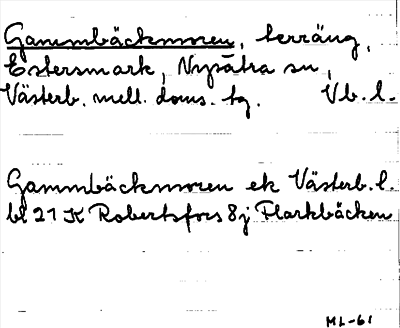 Gammbäckmoren, terräng,
Estersmark, Nysätra sn,
Västerb. mell. doms. tg. Vb. l.
Gammbäckmoren ek Västerb. l.
bl 21 K Robertsfors 8j Flarkbäcken
ML-61